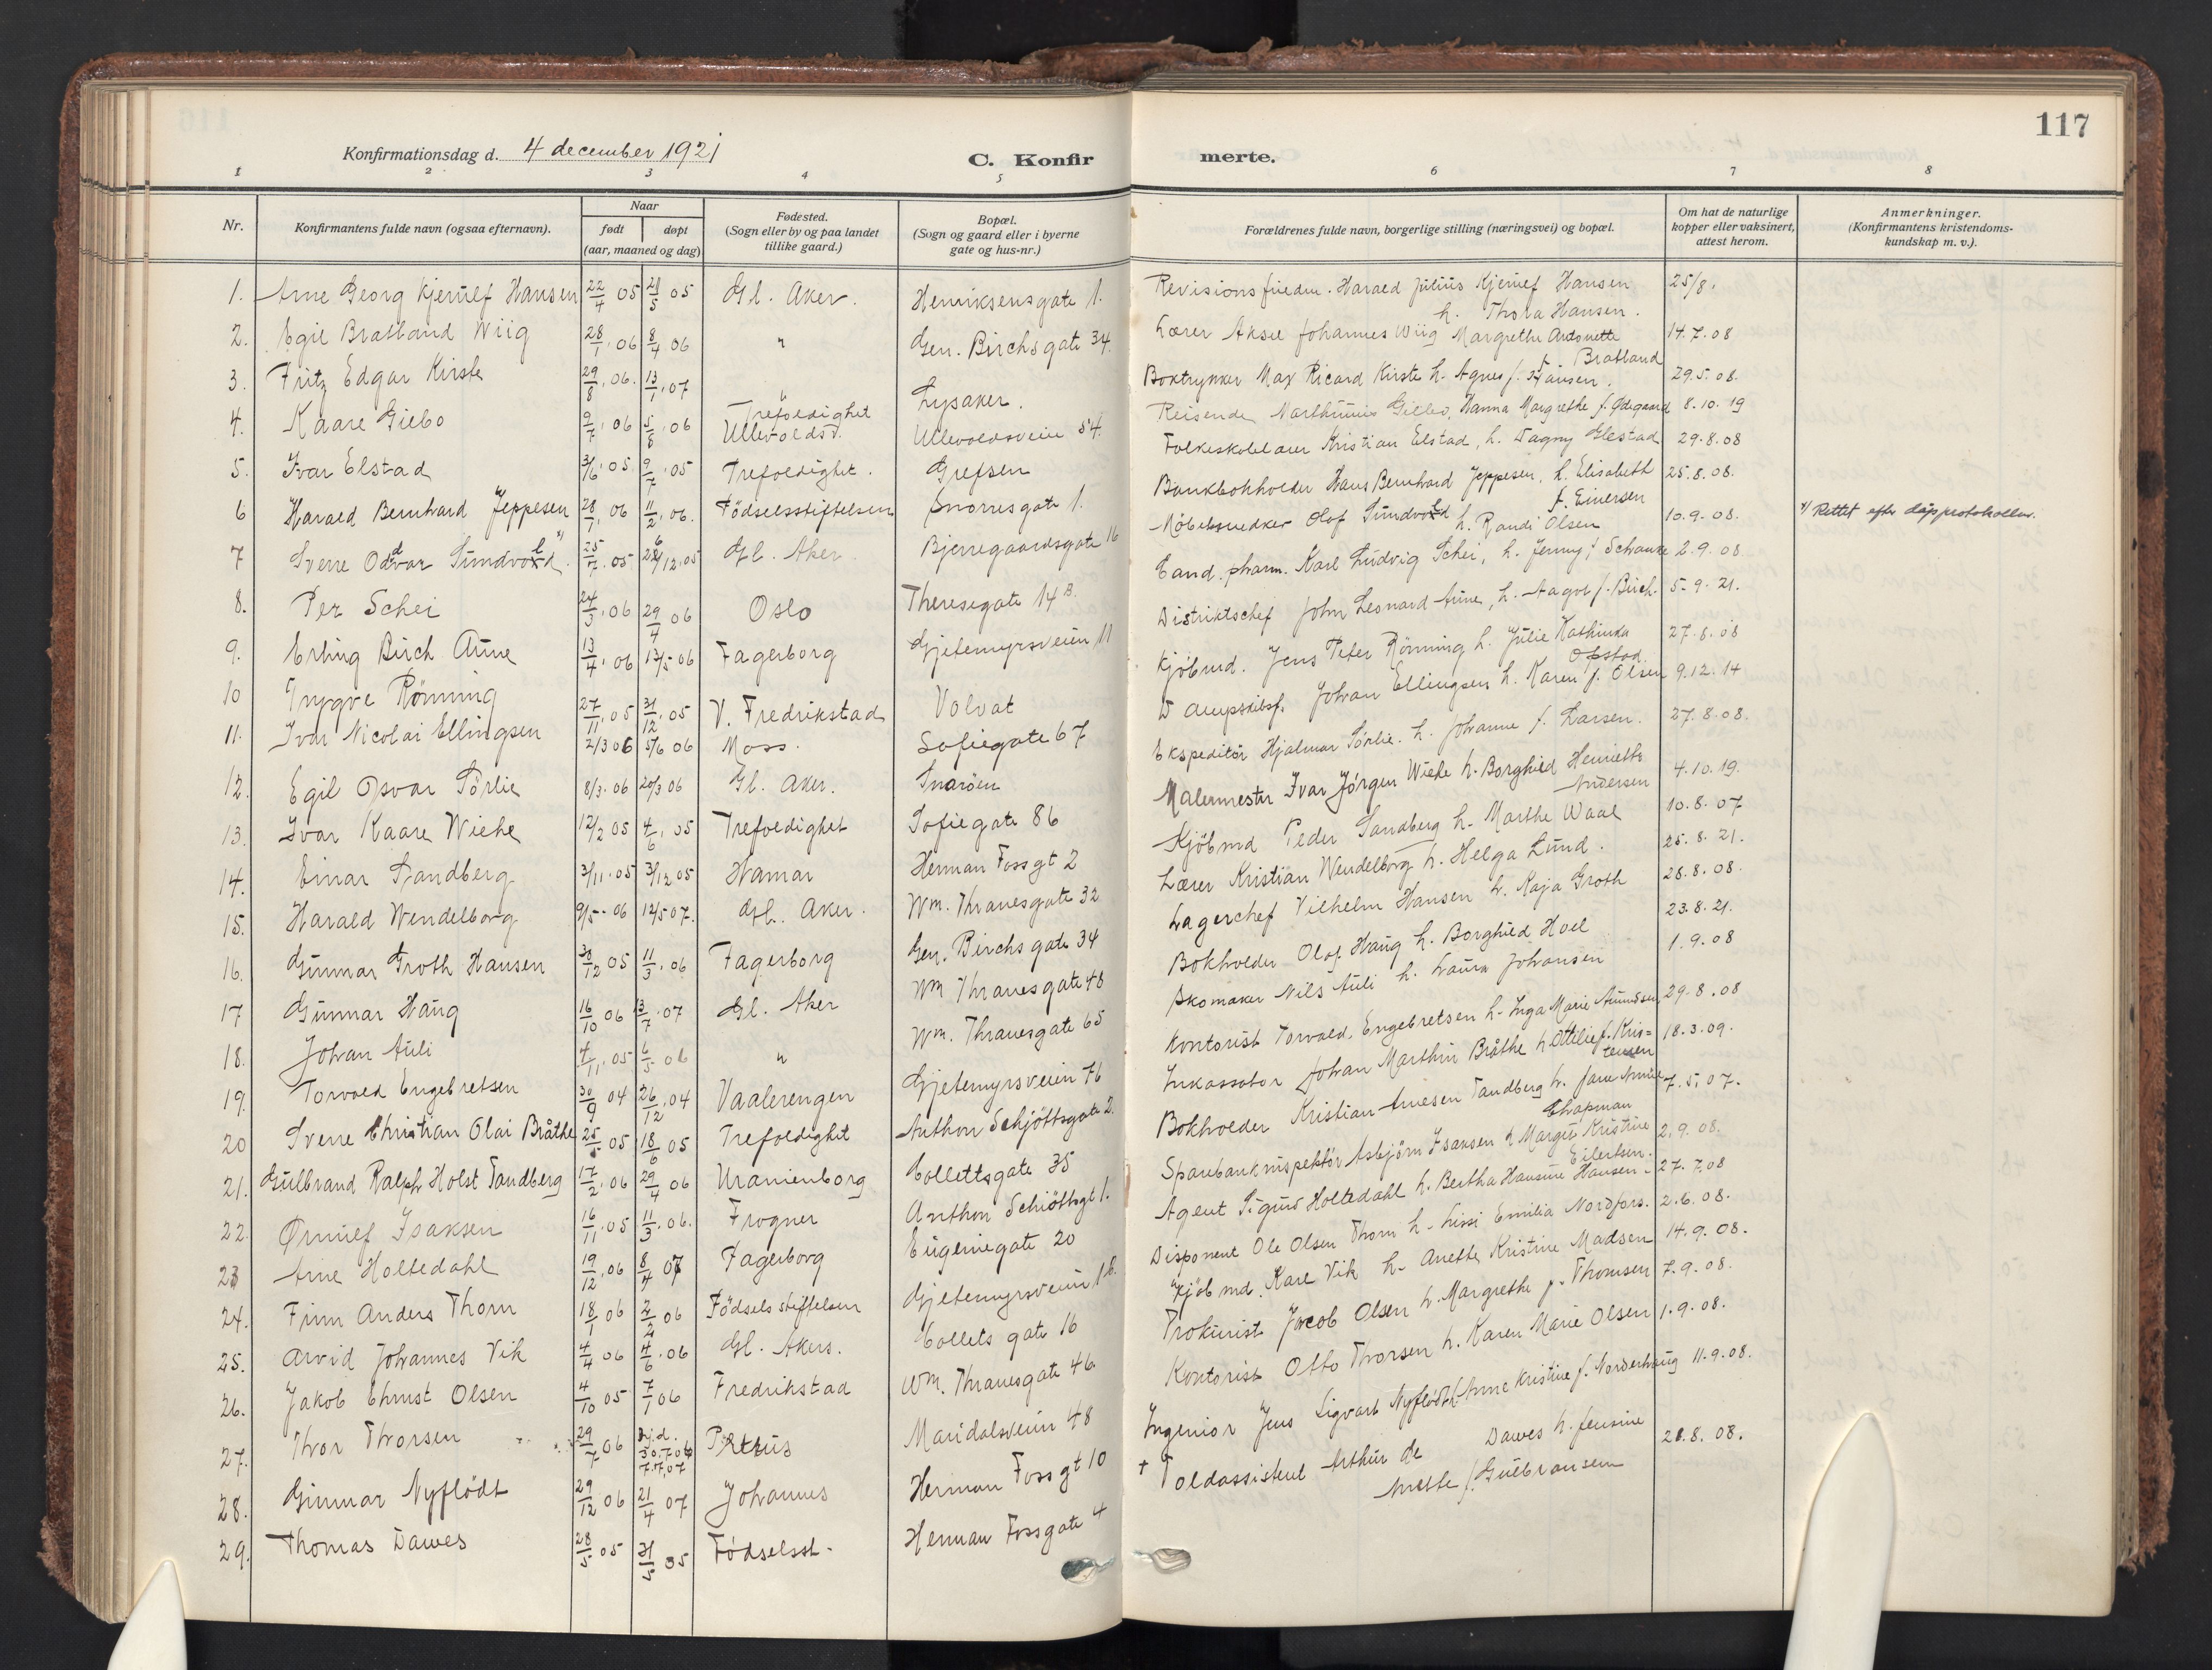 117
Konfirmationsdag d. 4 december 1921
C. Konfir
merte.
1 2 3 4 5 6 7 8
Nr.
Konfirmantens fulde navn (ogsaa efternavn).
Naar
født
døpt
(aar, maaned og dag)
Fødested.
(Sogn eller by og paa landet
tillike gaard.)
Bopæl.
(Sogn og gaard eller i byerne
gate og hus-nr.)
Forældrenes fulde navn, borgerlige stilling (næringsvei) og bopæl.
Om hat de naturlige
kopper eller vaksinert,
attest herom.
Anmerkninger.
(Konfirmantens kristendoms-
kundskap m. v.).
1. Arne Georg Kjerulf Hansen 22/4 05 21/5 05 Gl. Aker. Henriksensgate 1. Harald Julius Kjerulf Hansen 25/8.
h. Thora Hansen.
2. Egil Bratland Wiig 28/1. 06 8/4 06 " Gen. Birchsgate 34. Lærer Aksel Johannes Wiig Margrethe Antonette 14.7.08
f. Bratland
3. Fritz Edgar Kirste 29/8. 06. 13/1. 07 " Lysaker. Boktrykker Max Ricard Kirste h. Agnes f. Hansen. 29.5.08.
4. Kaare Giebo 9/7. 06 5/8. 06 Trefoldighet Ullevoldsv. Ullevoldsveien 54. Reisende Hanna Margrethe f. Ødegaard 8.10.19
5. Ivar Elstad 3/6. 05. 9/7. 05 Trefoldighet. Grefsen Folkeskolelærer Kristian Elstad, h. Dagny Elestad 29.8.08
6 Harald Bernhard Jeppesen 28/1. 06 11/2. 06. Fødselsstiftelsen Snorresgate 1. Bankbokholder Hans Bernhard Jeppesen, h. Elisabeth 25.8.08.
f. Einersen
7 Sverre Oddvar Sundvold 1) 25/7. 05 26/12.05 Gl. Aker. Bjerregaardsgate 16 Møbelsnedker Olof Sundvold h. Randi Olsen 10.9.08. 1) Rettet efter dåpsprotokollen.
8. Per Schei 24/3. 06 29/4 06 Oslo Theresegate 14 B. Cand. pharm. Karl Ludvig Schei, h. Jenny f. Schanke 2.9.08
9. Erling Birch Aune 13/4. 06 13/5 06 Fagerborg Gjetemyrsveien 11 Distriktschef John Leonard Aune, h. Aagot f. Birch. 5.9.21.
10 Trygve Rönning 27/11. 05 31/12. 05 V. Fredrikstad Volvat Kjöbmd. Jens Peter Rönning h. Julie Kathinka 27.8.08
Opstad.
11. Ivar Nicolai Ellingsen 2/3 06 5/6 06 Moss. Sofiegate 67 Johan Ellingsen h. Karen f. Olsen 9.12.14
12. Egil Opsvar Sörlie 8/3. 06 20/3 06 Gl. Aker. Snaröen Ekspeditör Hjalmar Sörlie. h. Johanne f. Larsen. 27.8.08.
13. Ivar Kaare Wiehe 12/2 05 4/6. 05 Trefoldighet Sofiegate 86 Malermester Ivar Jörgen Wiehe h. Borghild Henriette 4.10.19.
Andersen
14. Einar Sandberg 3/11.05 3/12 05 Hamar Herman Fossgt 2 Kjöbmd Peder Sandberg h. Marthe Waal 10.8.07
15. Harald Wendelborg 9/5-06 12/5 07. Gl. Aker. Wm. Thranesgate 32 Lærer Kristian Wendelborg h. Helga Lund. 25.8.21.
16. Gunnar Groth Hansen 30/12 05 11/3. 06 Fagerborg Gen. Birchs gate 34 Lagerchef Vilhelm Hansen h. Kaja Groth 28.8.08.
17 Gunnar Haug 16/10 06 13/7. 07 Gl. Aker Wm Thranesgate 48 Bokholder Olaf Haug h. Borghild Hoel 23.8.21.
18. Johan Auli 4/11. 05 6/5 06 " Wm. Thranesgate 65 Skomaker Nils Auli h. Laura Johansen 1.9.08
19. Torvald Engebretsen 30/9 04 26/12. 04 Vaalerengen Gjetemyrsveien 76 Kontorist Torvald. Engebretsen h. Inga Marie Amundsen 29.8.08
20 Sverre Christian Olai Bråthe 25/5 05 18/6 05 Trefoldighet Anthon Schjöttsgate 2. Inkassator Johan Marthin Bråthe h Ottilie f. Kris=
tensen 18.3.09.
21. Gulbrand Ralph Holst Tandberg 17/2. 06 29/4 06 Uranienborg Collettsgate 35 Bokholder Kristian Arnesen Tandberg h. Jane 7.5.07.
Chapman
22. Ørnulf Isaksen 16/11. 05 11/3. 06. Frogner Anthon Schiöttsgt 1. Sparebankinspektör Asbjörn Isaksen h Margit Kristine 2.9.08.
Eilertsen.
23 Arne Holtedahl 19/12. 06 8/4 07 Fagerborg Eugeniegate 20 Agent Sigurd Holtedahl h. Bertha Hansine Hansen- 27.7.08
24. Finn Anders Thorn 18/1 06 2/2 06 Födselsstiftelsen Gjetemyrsveien 16. Disponent Ole Olsen Thorn h. Lissi Emilia Nordfors. 2.6.08.
25. Arvid Johannes Vik 4/4 06 4/6. 06 Gl. Akers. Collets gate 16 Kjöbmd. Karl Vik h. Anette Kristine Madsen 14.9.08.
26. Jakob Ehrnst Olsen 4/10 05 7/1 06 Fredrikstad Wm. Thranesgate 46. Prokurist Jacob Olsen h. Margrethe f. Thomsen 7.9.08.
27. Thor Thorsen 29/7 06 Hj.d. 30.7.06 7.7.07 Petrus Maridalsveien 48 Kontorist Otto Thorsen h. Karen Marie Olsen 1.9.08.
28. Gunnar Nyflödt 29/12 06 21/4 07 Johannes Herman Foss gt 10 Ingeniör Jens Sigvart Nyflödt h. Anne Kristine f. Norderhaug 11.9.08.
29. Thomas Dawes 28/5 05 31/5 05 Födselsst. Herman Fossgate 4 + Toldassistent Arthur de Dawes h. Jensine
Anette f. Gulbransen 28.8.08.